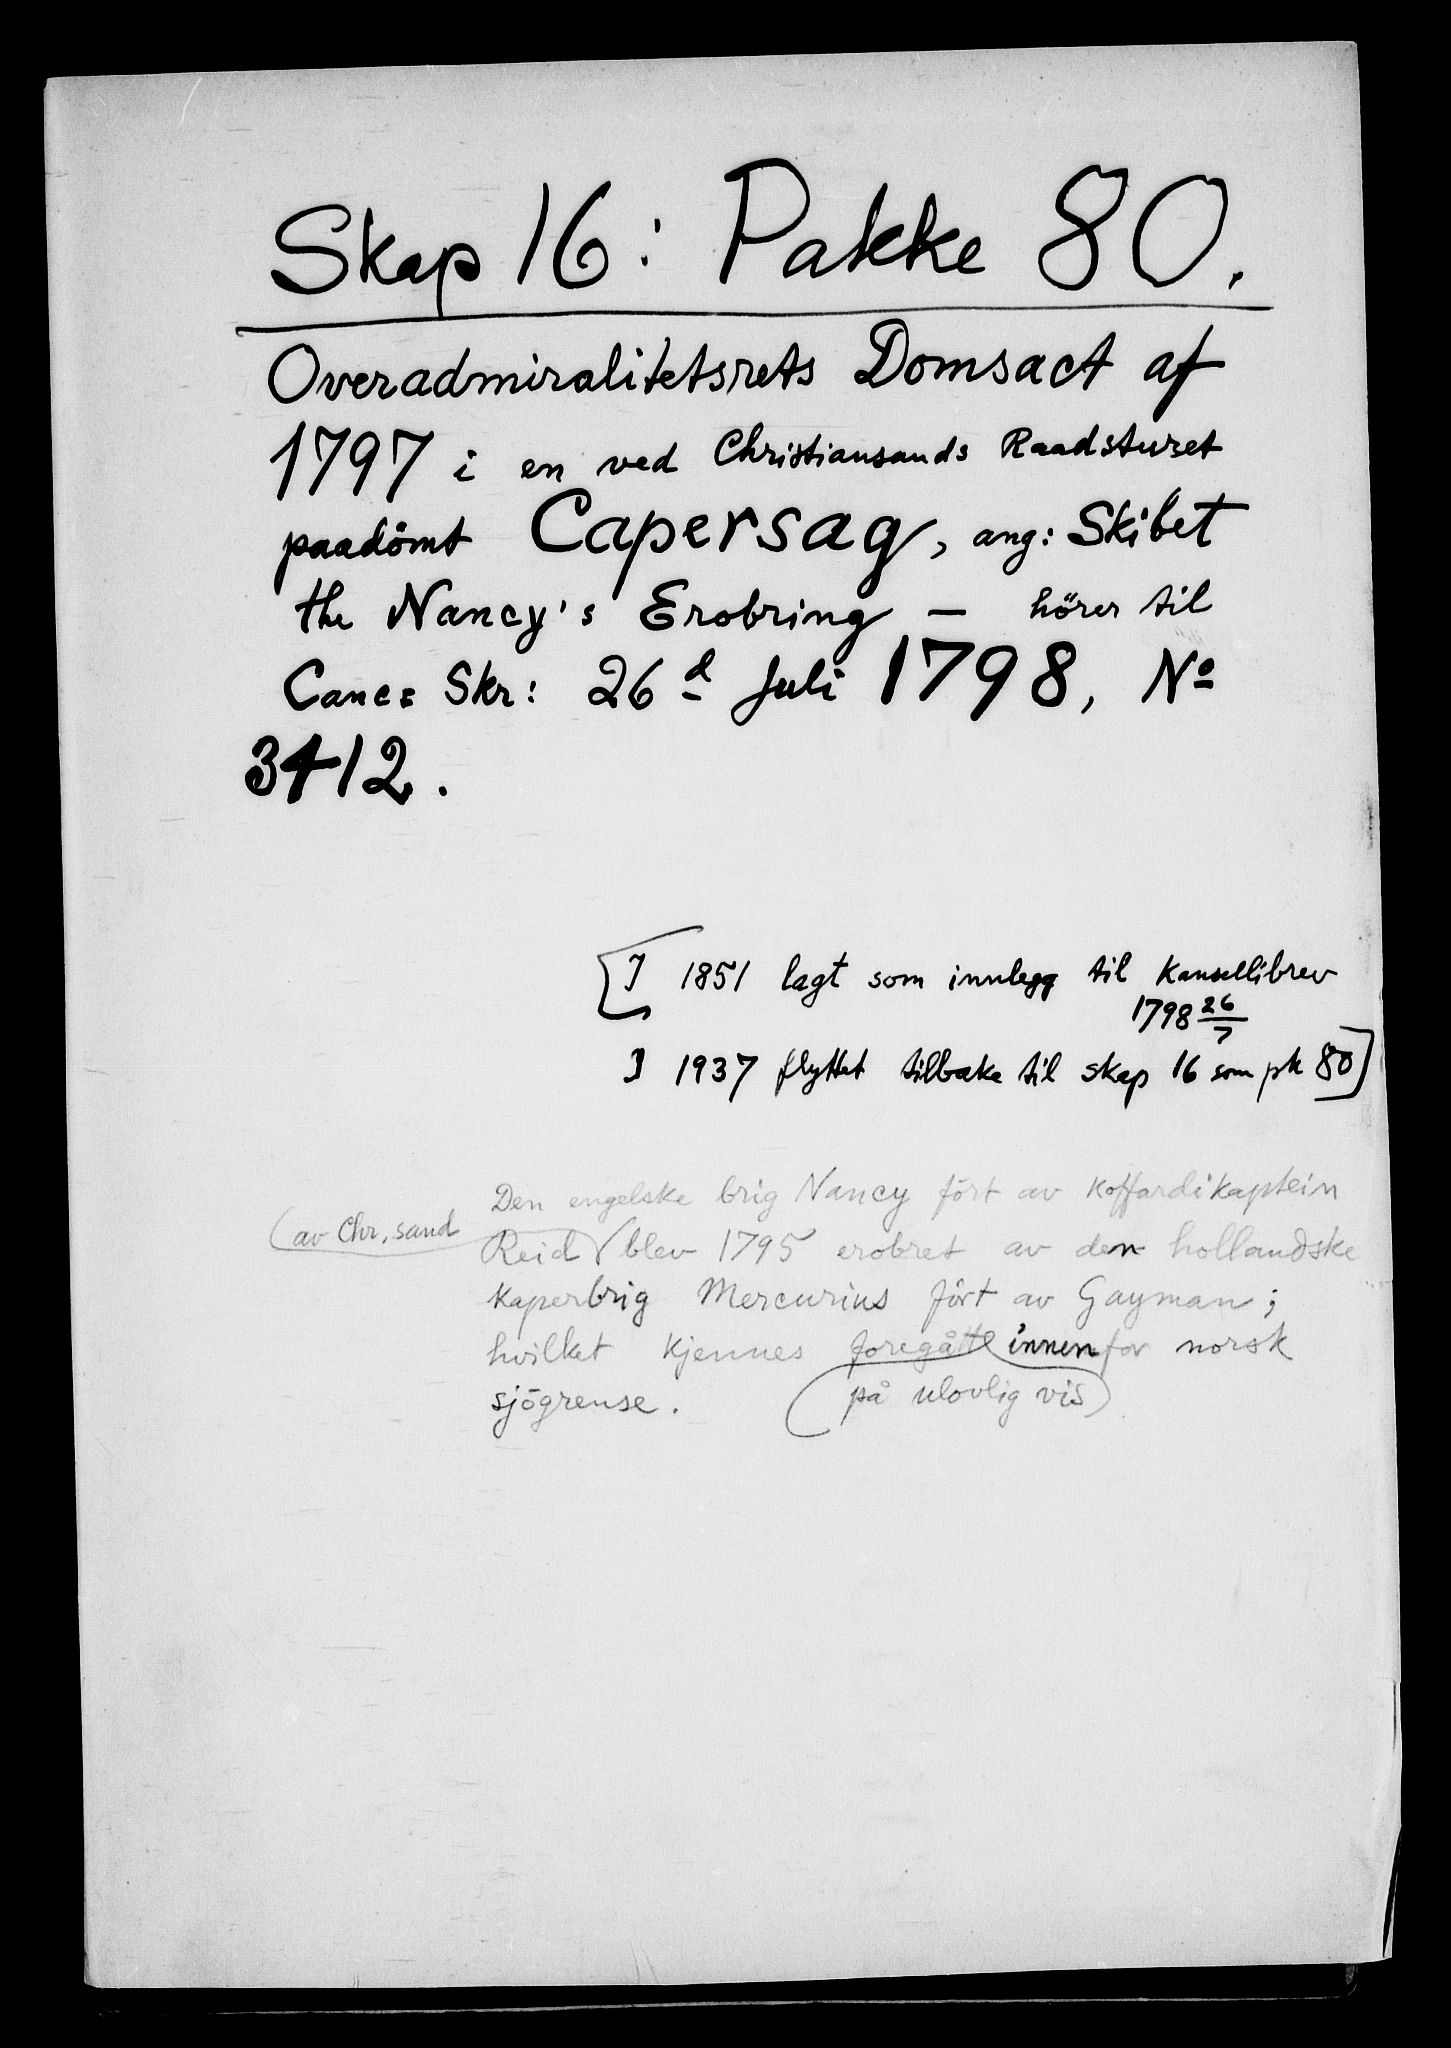 Skap 16: Pakke 80.
Overadmiralitetsrets Domsact af
1797 i en ved Christiansands Raadsturet
paadömt Capersag, ang: Skibet
the Nancy's Erobring — hörer til
Canc: Skr: 26d Juli 1798, No
3412.
[I 1851 lagt som innlegg til Kansellibrev
1798 26/7
I 1937 flyttet tilbake til skap 16 som pk 80]
Den engelske brig Nancy fört av koffardikaptein
(av Chr.sand
Reid √ blev 1795 erobret av den hollandske
kaperbrig Mercurius fört av Gayman;
hvilket kjennes foregått innenfor norsk
sjögrense. (på ulovlig vis)